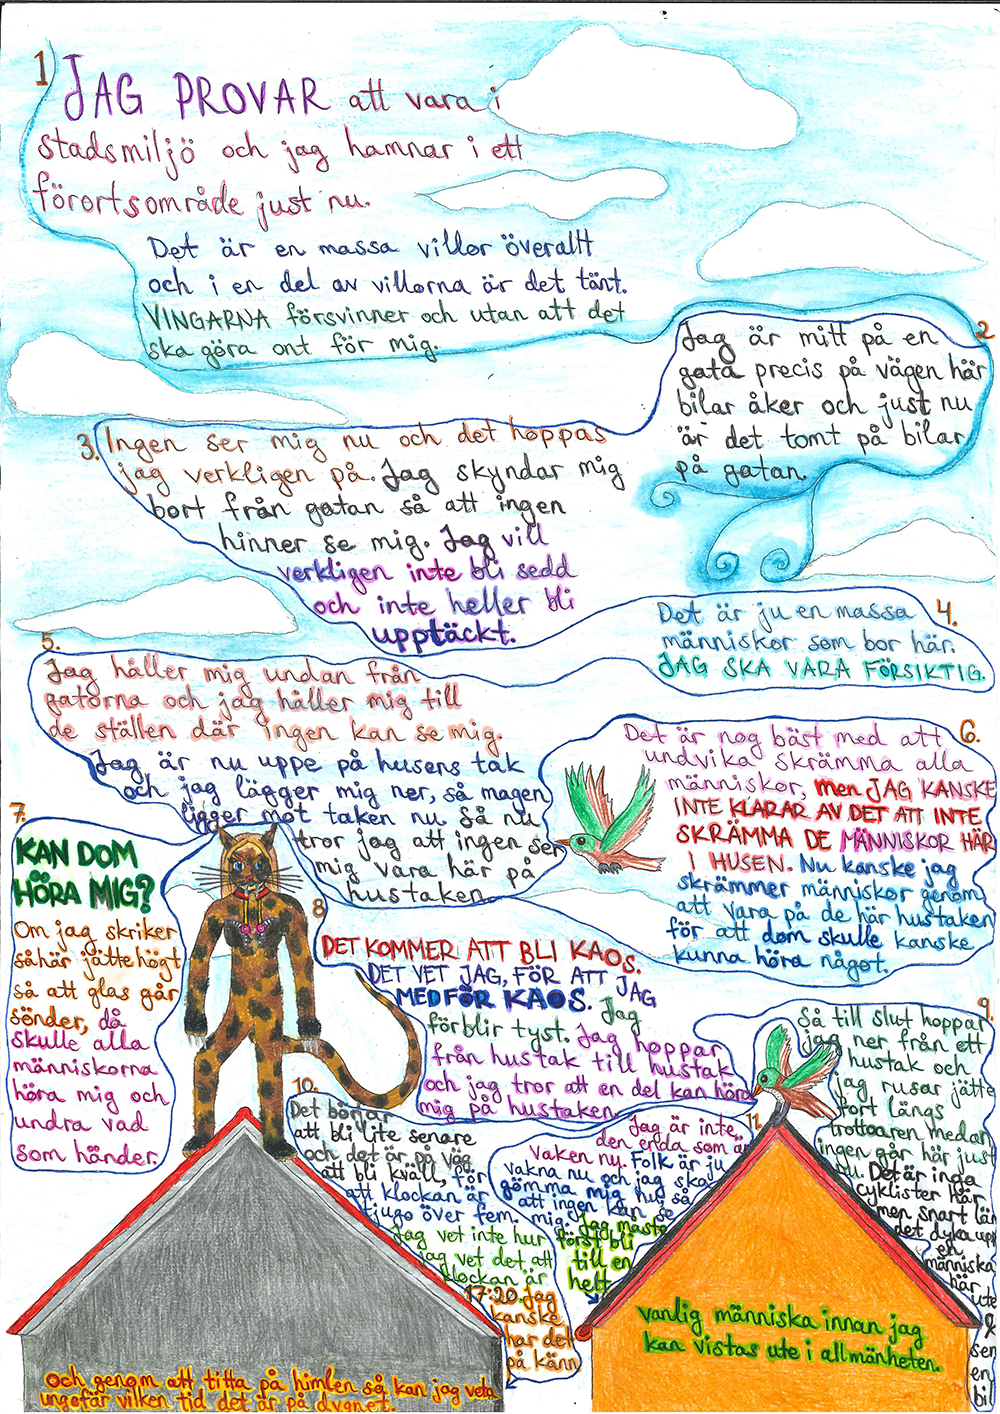 1
JAG PROVAR att vara i
stadsmiljö och jag hamnar i ett
förortsområde just nu.
Det är en massa villor överallt
och i en del av villorna är det tänt.
VINGARNA försvinner och utan att det
ska göra ont för mig.
2
Jag är mitt på en
gata precis på vägen här
bilar åker och just nu
är det tomt på bilar
på gatan.
3. Ingen ser mig nu och det hoppas
jag verkligen på. Jag skyndar mig
bort från gatan så att ingen
hinner se mig. Jag vill
verkligen inte bli sedd
och inte heller bli
upptäckt.
4.
Det är ju en massa
människor som bor här.
JAG SKA VARA FÖRSIKTIG.
5.
Jag håller mig undan från
gatorna och jag håller mig till
de ställen där ingen kan se mig.
Jag är nu uppe på husens tak
och jag lägger mig ner, så magen
ligger mot taken nu. Så nu
tror jag att ingen ser
mig vara här på
hustaken.
6.
Det är nog bäst med att
undvika skrämma alla
människor, men JAG KANSKE
INTE KLARAR AV DET ATT INTE
SKRÄMMA DE MÄNNISKOR HÄR
I HUSEN. Nu kanske jag
skrämmer människor genom
att vara på de här hustaken
för att dom skulle kanske
kunna höra något.
7.
KAN DOM
HÖRA MIG?
Om jag skriker
såhär jättehögt
så att glas går
sönder, då
skulle alla
människorna
höra mig och
undra vad
som händer.
8
DET KOMMER ATT BLI KAOS.
DET VET JAG, FÖR ATT JAG
MEDFÖR KAOS. Jag
förblir tyst. Jag hoppar
från hustak till hustak
och jag tror att en del kan höra
mig på hustaken.
9.
Så till slut hoppar
jag ner från ett
hustak och
jag rusar jätte
fort längs
trottoaren medan
ingen går här just
nu. Det är inga
cyklister här
men snart lär
det dyka upp
en
människa
här
ute
&
sen
en
bil
10.
Det börjar
att bli lite senare
och det är på väg
att bli kväll, för
att klockan är
tjugo över fem.
Jag vet inte hur
jag vet det att
klockan är
17:20. Jag
kanske
har det
på känn
och genom att titta på himlen så kan jag veta
ungefär vilken tid det är på dygnet.
11.
Jag är inte
den enda som är
vaken nu. Folk är ju
vakna nu och jag ska
gömma mig nu så
att ingen kan se
mig. Jag måste
först bli
till en
helt
vanlig människa innan jag
kan vistas ute i allmänheten.